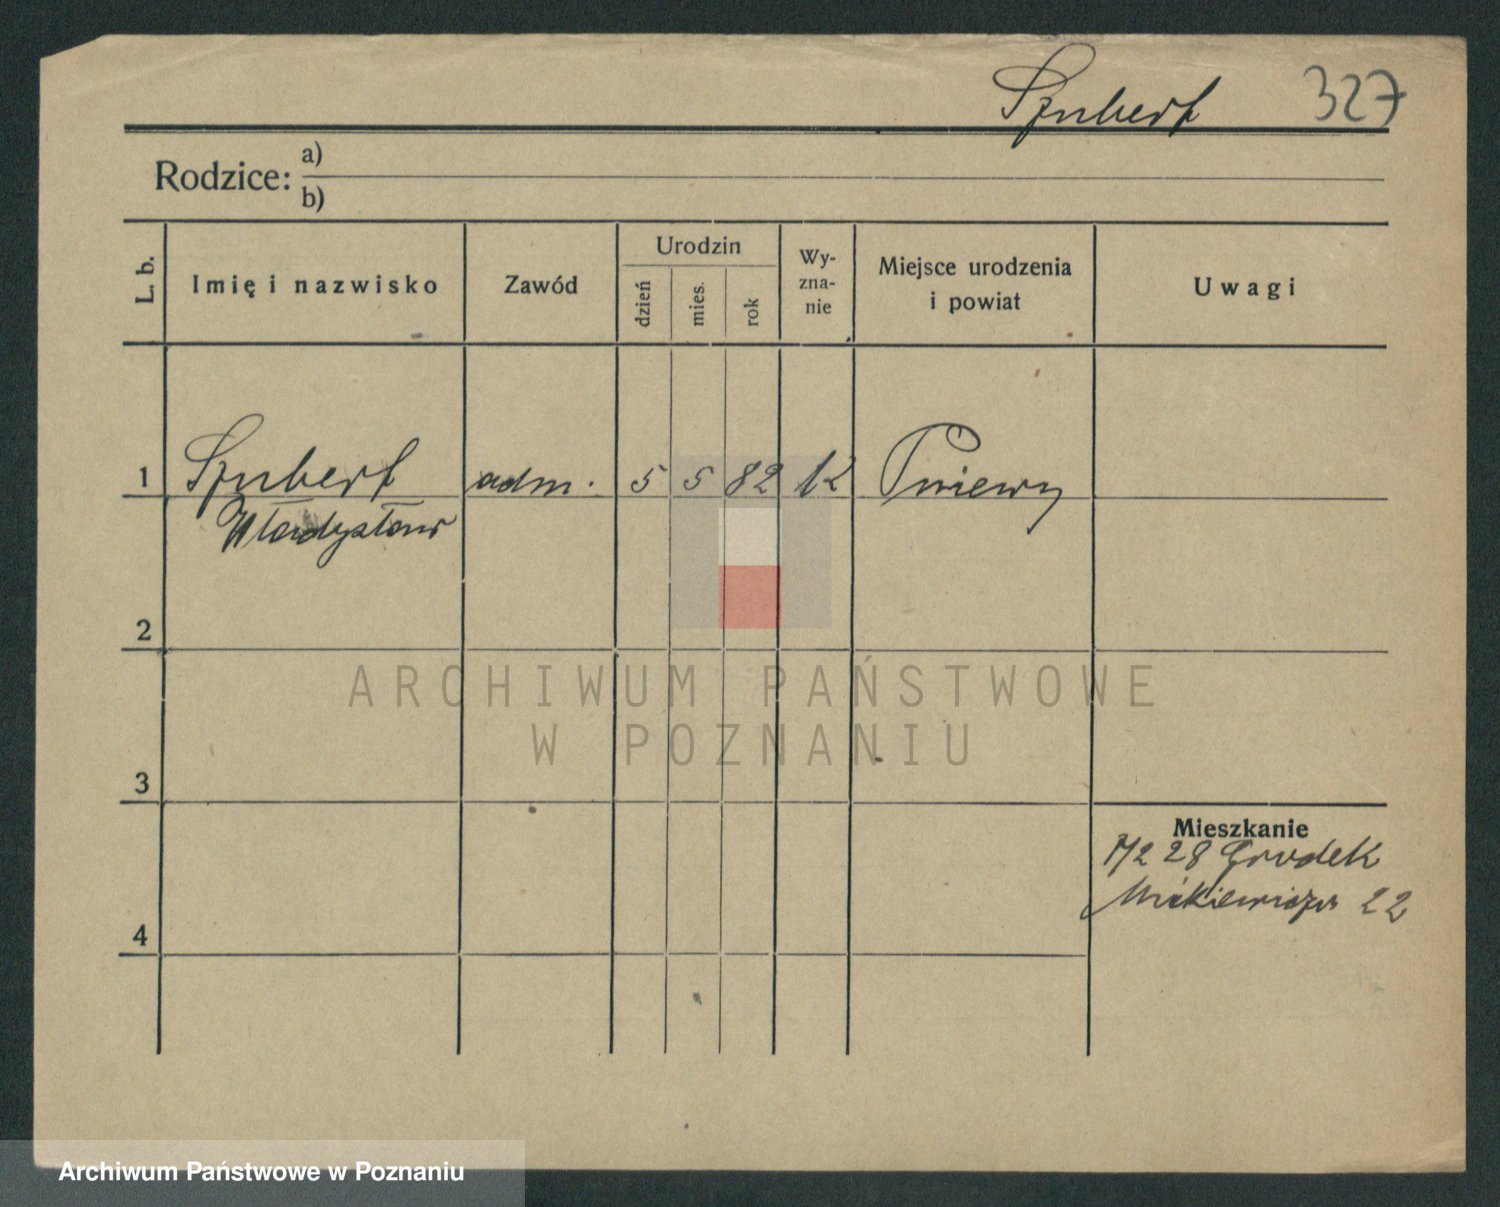 Szubert 327
Rodzice: a)
b)
L. b.
Imię i nazwisko
Zawód
Urodzin
dzień
mies.
rok
Wy-
zna-
nie
Miejsce urodzenia
i powiat
Uwagi
1 Szubert adm. 5 5 82 k Pniewy
Władysław
2
3
4
Mieszkanie
7/2 28 Grudek
Mickiewicza 22
ARCHIWUM PAŃSTWOWE
W POZNANIU
Archiwum Państwowe w Poznaniu